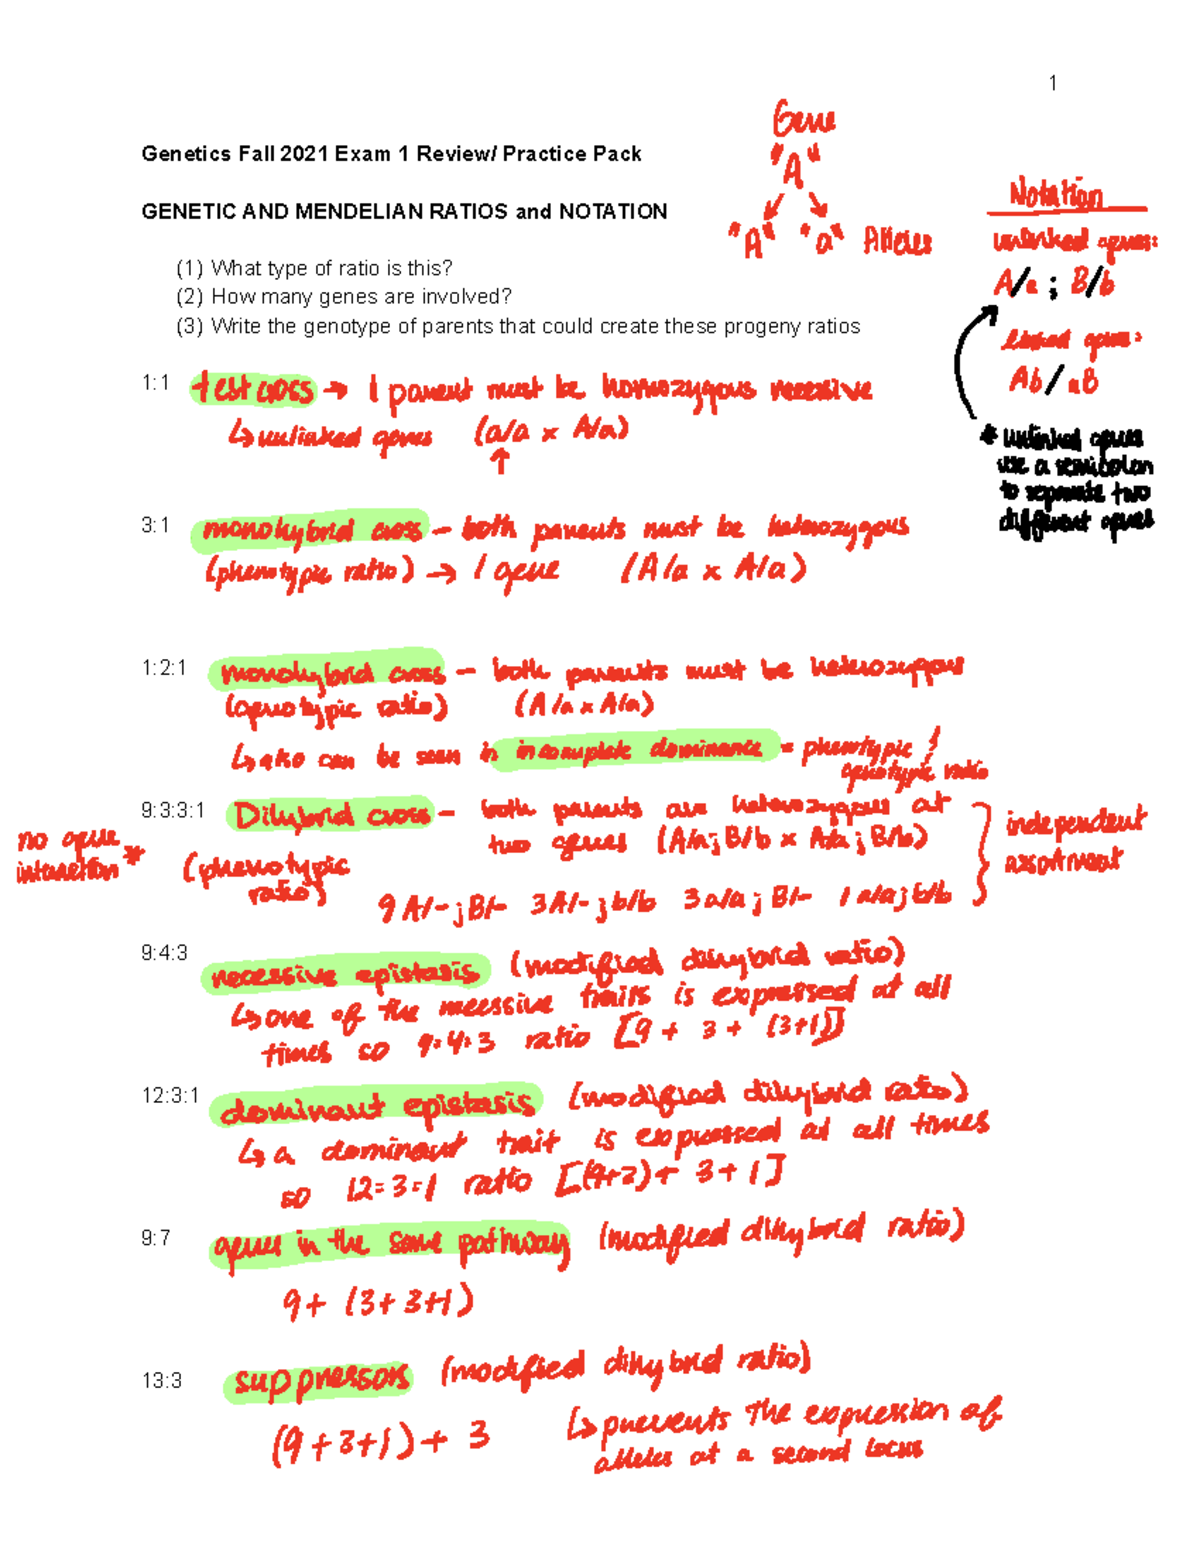 1
Genetics Fall 2021 Exam 1 Review/ Practice Pack
GENETIC AND MENDELIAN RATIOS and NOTATION
Gene
"A"
"A" "a" Alleles
Notation
unlinked genes:
A/a ; B/b
linked genes:
Ab/aB
* unlinked genes
use a semicolon
to separate two
different genes
(1) What type of ratio is this?
(2) How many genes are involved?
(3) Write the genotype of parents that could create these progeny ratios
1:1 test cross → 1 parent must be homozygous recessive
↳ unlinked genes (a/a x A/a)
↑
3:1 monohybrid cross - both parents must be heterozygous
(phenotypic ratio) → 1 gene (A/a x A/a)
1:2:1 monohybrid cross - both parents must be heterozygous
(genotypic ratio) (A/a x A/a)
↳ also can be seen in incomplete dominance = phenotypic /
genotypic ratio
9:3:3:1 Dihybrid cross - both parents are heterozygous at
two genes (A/a;B/b x A/a;B/b)
no gene
interaction *
(phenotypic
ratio)
9 A/-;B/- 3A/-;b/b 3a/a;B/- 1a/a;b/b
independent
assortment
9:4:3 recessive epistasis (modified dihybrid ratio)
↳ one of the recessive traits is expressed at all
times so 9:4:3 ratio [9 + 3 + (3+1)]
12:3:1 dominant epistasis (modified dihybrid ratio)
↳ a dominant trait is expressed at all times
so 12:3:1 ratio [(9+2)+ 3+1]
9:7 genes in the same pathway (modified dihybrid ratio)
9+ (3+3+1)
13:3 suppressors (modified dihybrid ratio)
(9+3+1)+ 3 ↳ prevents the expression of
alleles at a second locus